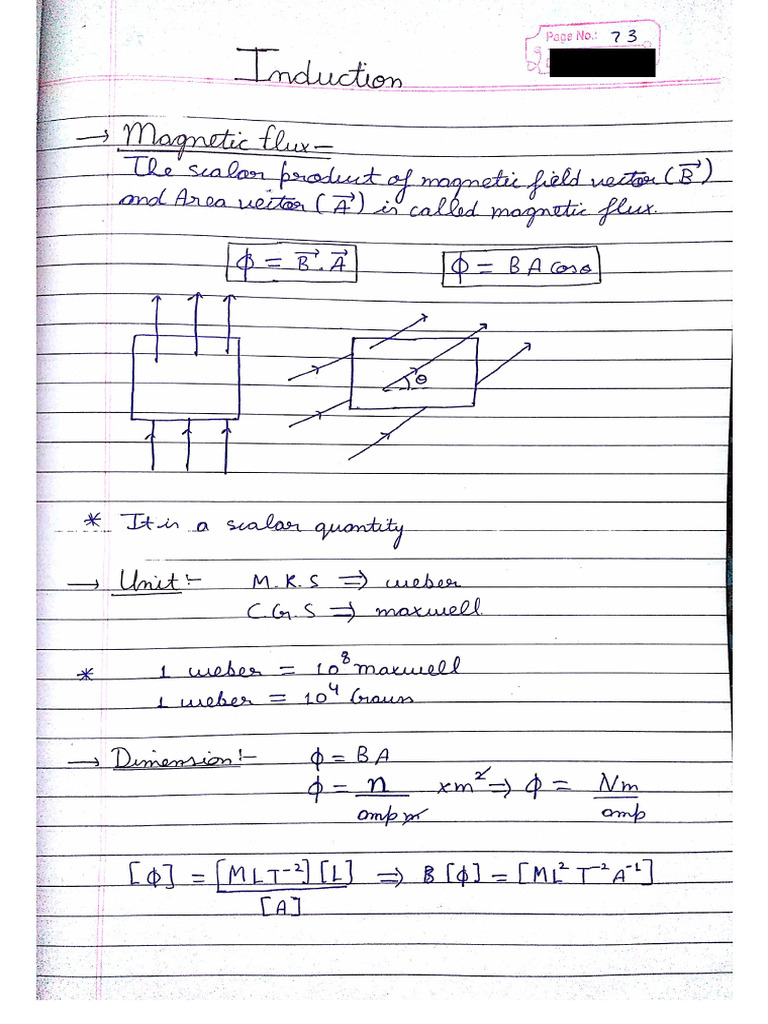 Page No.: 73
Induction
→ Magnetic flux =
The scalar product of magnetic field vector (B⃗)
and Area vector (A⃗) is called magnetic flux.
ϕ = B⃗.A⃗ ϕ = BA cosθ
θ
* It is a scalar quantity
→ Unit :- M.K.S ⇒ weber
C.G.S ⇒ maxwell
* 1 weber = 10⁸ maxwell
1 weber = 10⁴ Gauss
→ Dimension :- ϕ = BA
ϕ = n/amp m × m² ⇒ ϕ = Nm/amp
[ϕ] = [MLT⁻²][L]/[A] ⇒ B[ϕ] = [ML²T⁻²A⁻¹]